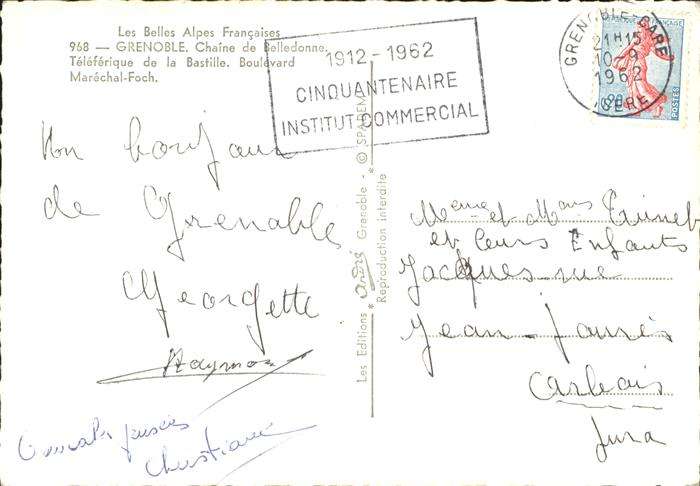 Les Belles Alpes Françaises
968 — GRENOBLE. Chaîne de Belledonne.
Téléférique de la Bastille. Boulevard
Maréchal-Foch.
1912 - 1962
CINQUANTENAIRE
INSTITUT COMMERCIAL
GRENOBLE-GARE
21H15
10-9
1962
ISERE
POSTES
Un bonjour
de Grenoble
Georgette
Raymon
pensées
Christiane
Les Editions "André" Grenoble - © SPADEM
Reproduction interdite
et leurs Enfants
Jacques rue
Jean-Jaurès
Arbois
Jura